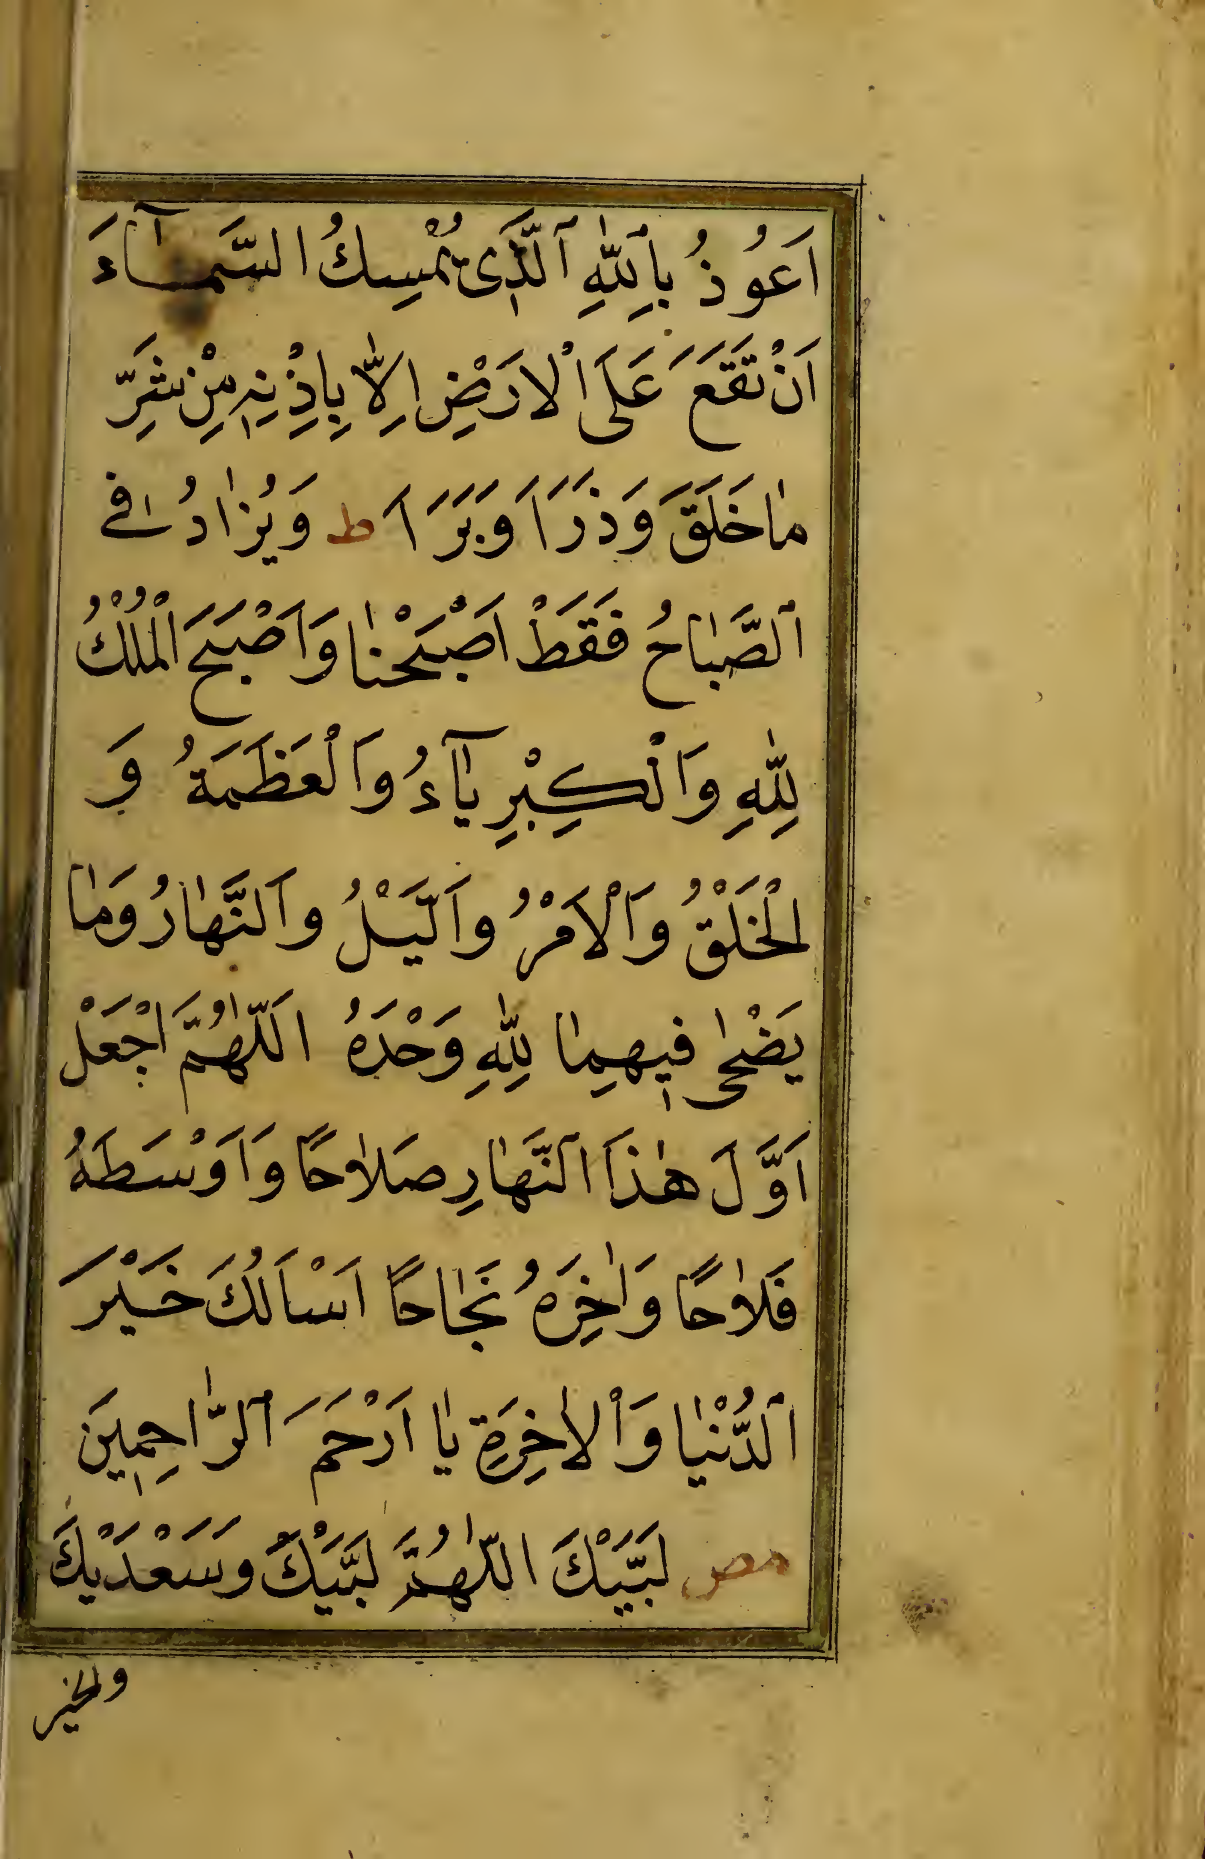 اَعُوذُ بِاللّٰهِ الَّذَى يُمْسِكُ السَّمَآءَ
اَنْ تَقَعَ عَلَى الْاَرَضِ اِلَّا بِاِذْنِهٖ مِنْ شَرِّ
مَاخَلَقَ وَذَرَاَ وَبَرَاَ ط وَيُزَادُ فِى
الصَّبَاحُ فَقَطْ اَصْبَحْنَا وَاَصْبَحَ الْمُلْكُ
لِلّٰهِ وَالْكِبْرِيَآءُ وَالْعَظَمَةُ وَ
الْخَلْقُ وَالْاَمْرُ وَالَّيْلُ وَالنَّهَارُ وَمَا
يَضْحٰى فِيهِمَا لِلّٰهِ وَحْدَهُ اَللّٰهُمَّ اجْعَلْ
اَوَّلَ هٰذَا النَّهَارِ صَلَاحًا وَاَوْسَطَهُ
فَلَاحًا وَاٰخِرَهُ نَجَاحًا اَسْاَلُكَ خَيْرَ
الدُّنْيَا وَالْاٰخِرَةِ يَا اَرْحَمَ الرَّاحِمِينَ
مص لَبَّيْكَ اللّٰهُمَّ لَبَّيْكَ وَسَعْدَيْكَ
والخير